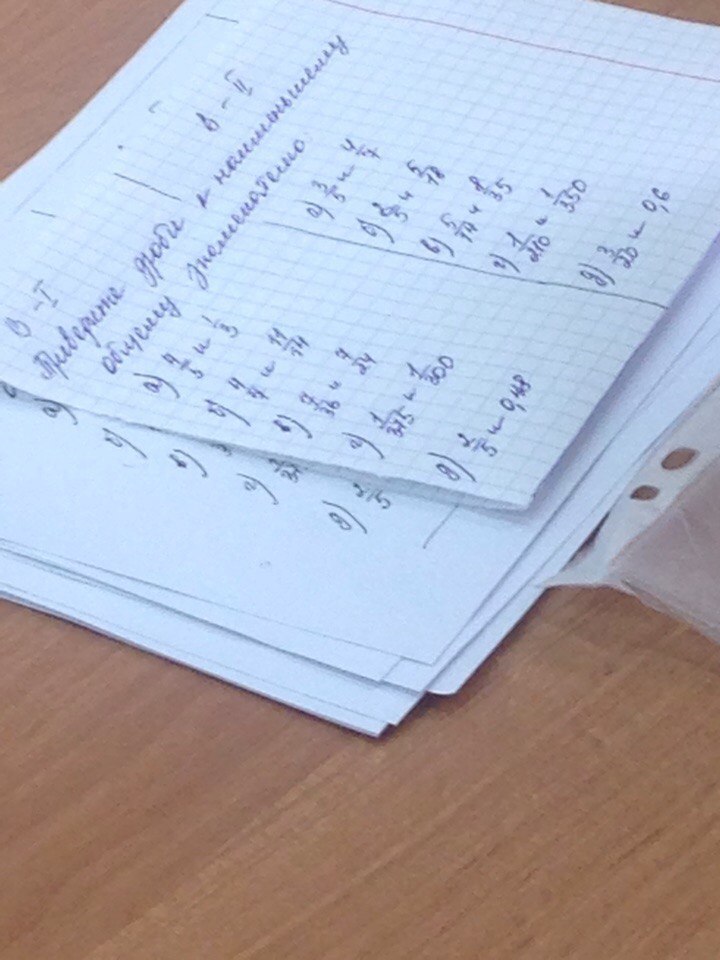 В - I
В - II
Приведите дроби к наименьшему
общему знаменателю:
а) 4/5 и 1/3
б) 4/7 и 11/14
в) 7/36 и 7/24
г) 1/375 и 1/300
д) 2/5 и 0,48
а) 3/5 и 4/7
б) 2/5 и 5/18
в) 5/14 и 8/35
г) 1/210 и 1/350
д) 3/20 и 0,6
а)
б)
в)
г)
д) 2/5